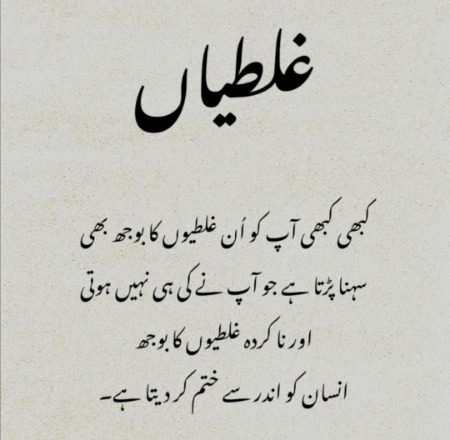 غلطیاں
کبھی کبھی آپ کو اُن غلطیوں کا بوجھ بھی
سہنا پڑتا ہے جو آپ نے کی ہی نہیں ہوتی
اور نا کردہ غلطیوں کا بوجھ
انسان کو اندر سے ختم کر دیتا ہے۔